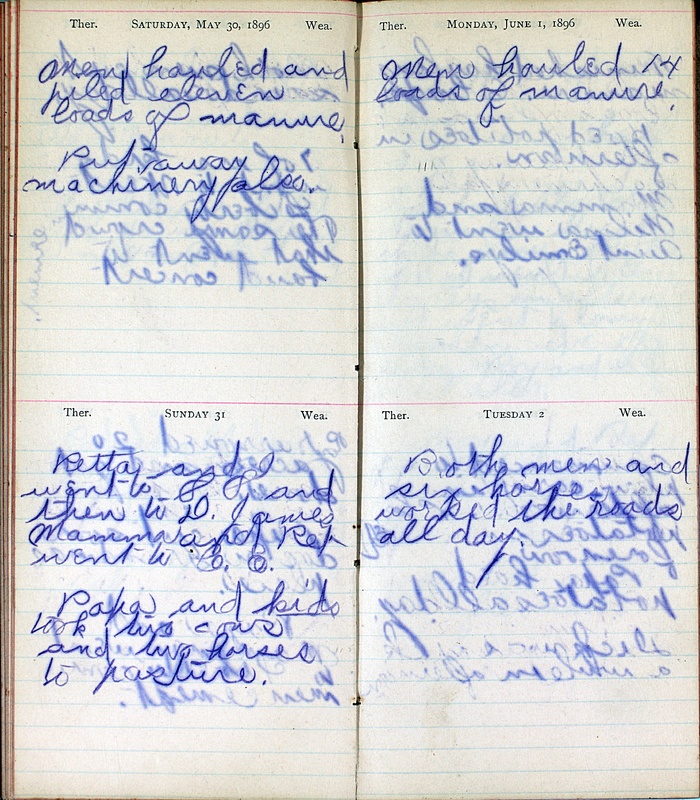 Ther. SATURDAY, MAY 30, 1896 Wea.
Men hauled and
piled eleven
loads of manure.
Put away
machinery also.
Ther. SUNDAY 31 Wea.
Retta and I
went to J J and
then to D. James
Mamma and Ref
went to C. C.
Papa and kids
took two cows
and two horses
to pasture.
Ther. MONDAY, JUNE 1, 1896 Wea.
Men hauled 14
loads of manure.
Ther. TUESDAY 2 Wea.
Both men and
six horses
worked the roads
all day.